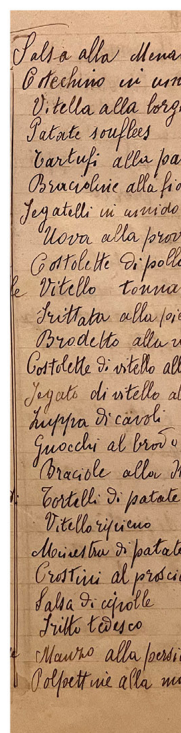 Salsa alla Mena
Cotechino in um
Vitella alla borg
Patate souflees
Tartufi alla pa
Bracioline alla fio
Fegatelli in umido
Uova alla prov
Costolette di pollo
Vitello tonna
Frittata alla pie
Brodetto alla
Costolette di vitello all
Fegato di vitello al
Zuppa di cavoli
Gnocchi al brodo
Braciole alla
Tortelli di patate
Vitello ripieno
Minestra di patate
Crostini al prosci
Salsa di cipolle
Fritto tedesco
Manzo alla persi
Polpettine alla